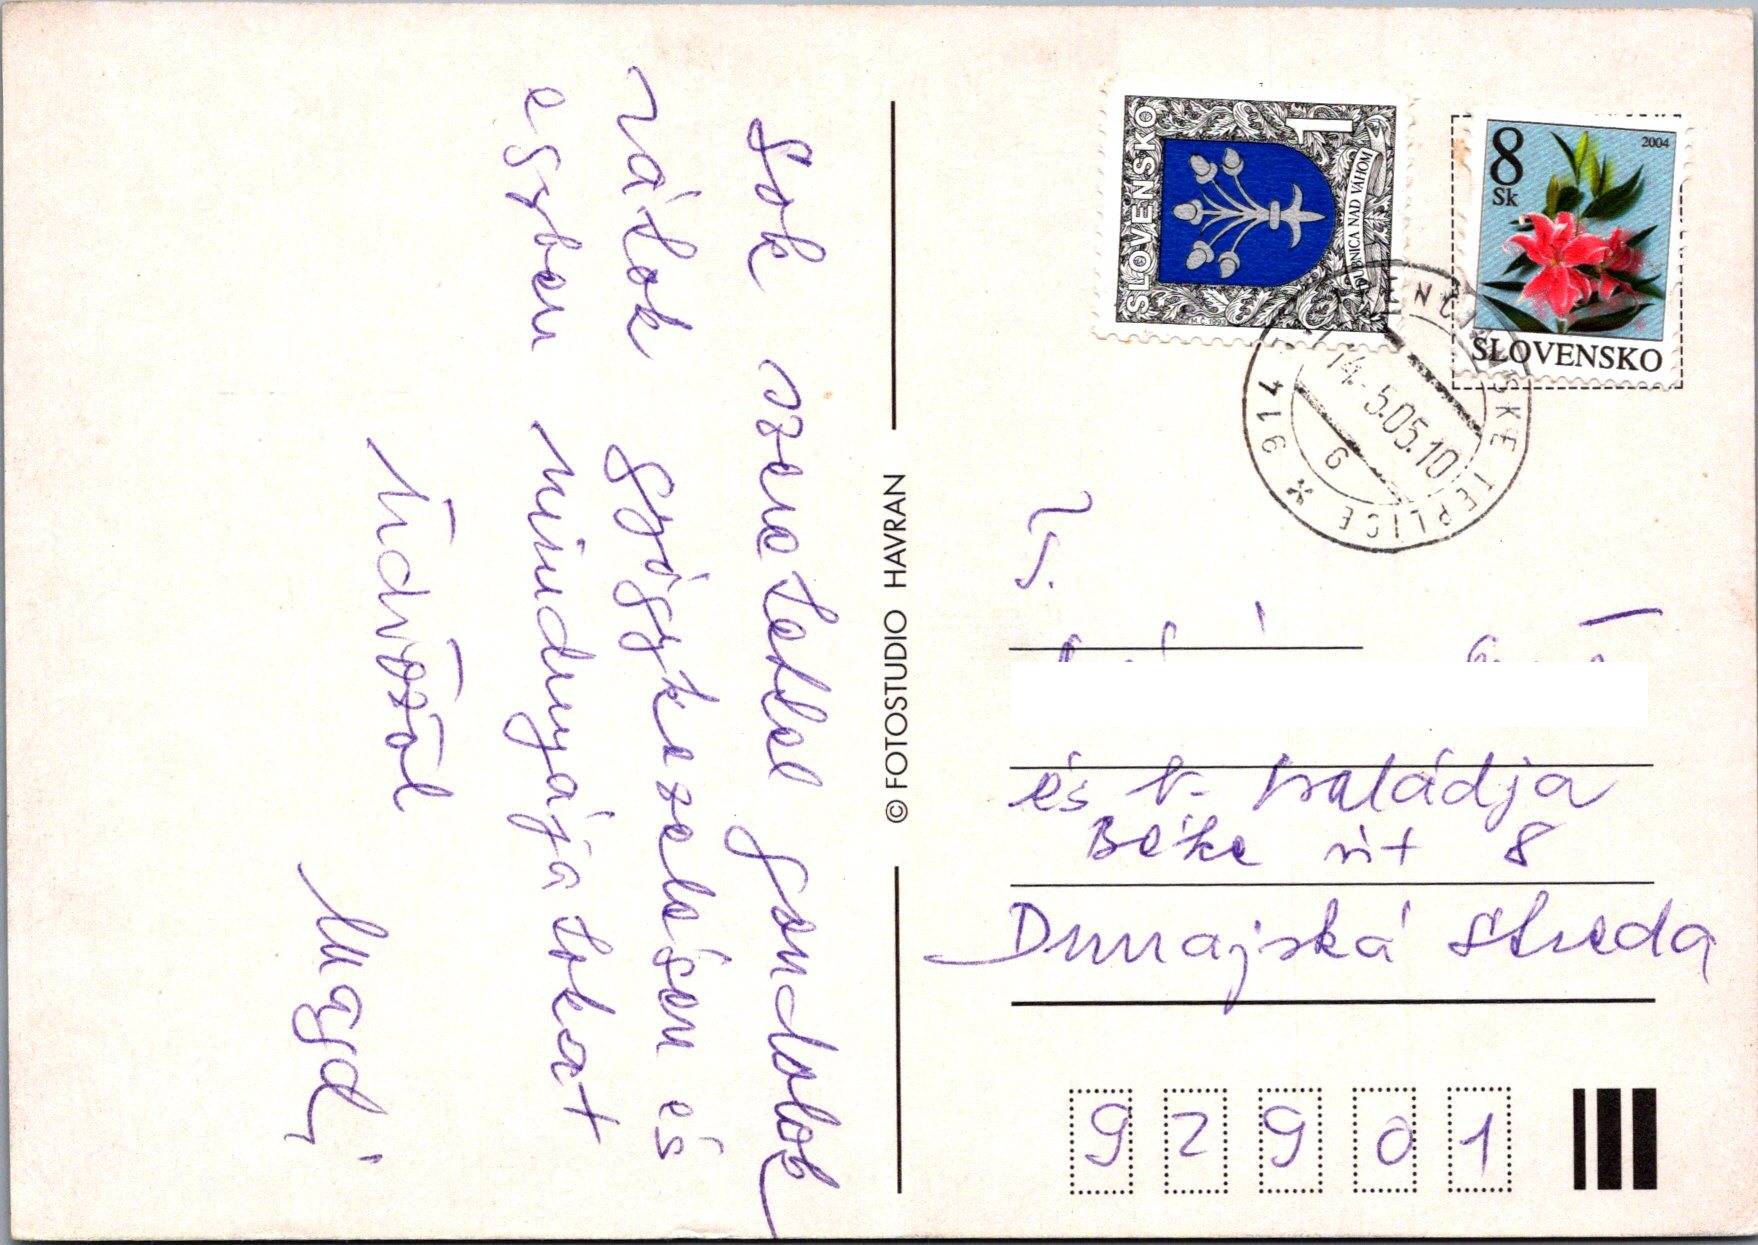 Sok szeretettel gondolok
rátok gyógykezelésen és
egyben mindnyájatokat
üdvözöl
Magdi
© FOTOSTUDIO HAVRAN
SLOVENSKO
1
DUBNICA NAD VÁHOM
8
Sk
2004
SLOVENSKO
914
TEPLICE
14.-5.05.10
6
és k. családja
Béke út 8
Dunajská Streda
92901